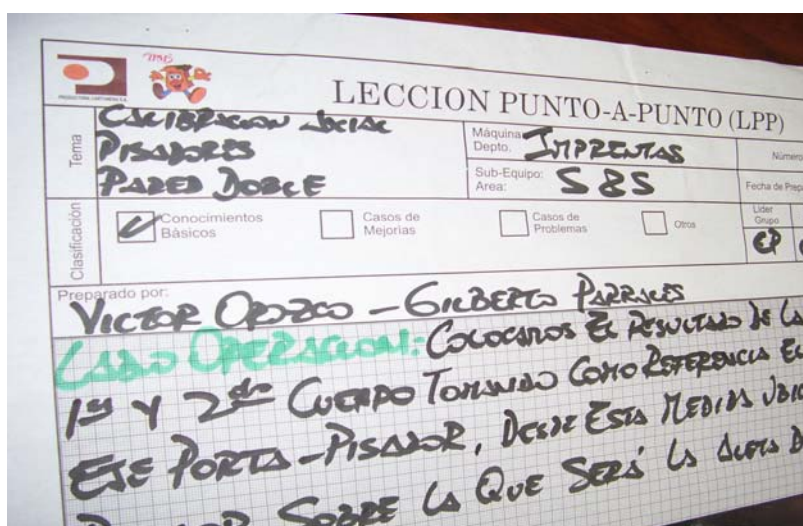 LECCION PUNTO-A-PUNTO (LPP)
Tema
CALIBRACION INICIAL
PISADORES
PARED DOBLE
Máquina
Depto. IMPRENTAS
Número
Sub-Equipo:
Area: S&S
Fecha de Prep
Clasificación
Conocimientos
Básicos
Casos de
Mejorias
Casos de
Problemas
Otros
Lider
Grupo
EP
Preparado por:
VICTOR OROZCO - GILBERTO PARRALES
LADO OPERACION: COLOCAMOS EL RESULTADO DE LA
1er Y 2do CUERPO TOMANDO COMO REFERENCIA EL
EJE PORTA-PISADOR, DESDE ESTA MEDIDA
SOBRE LA QUE SERÁ LA ALETA D